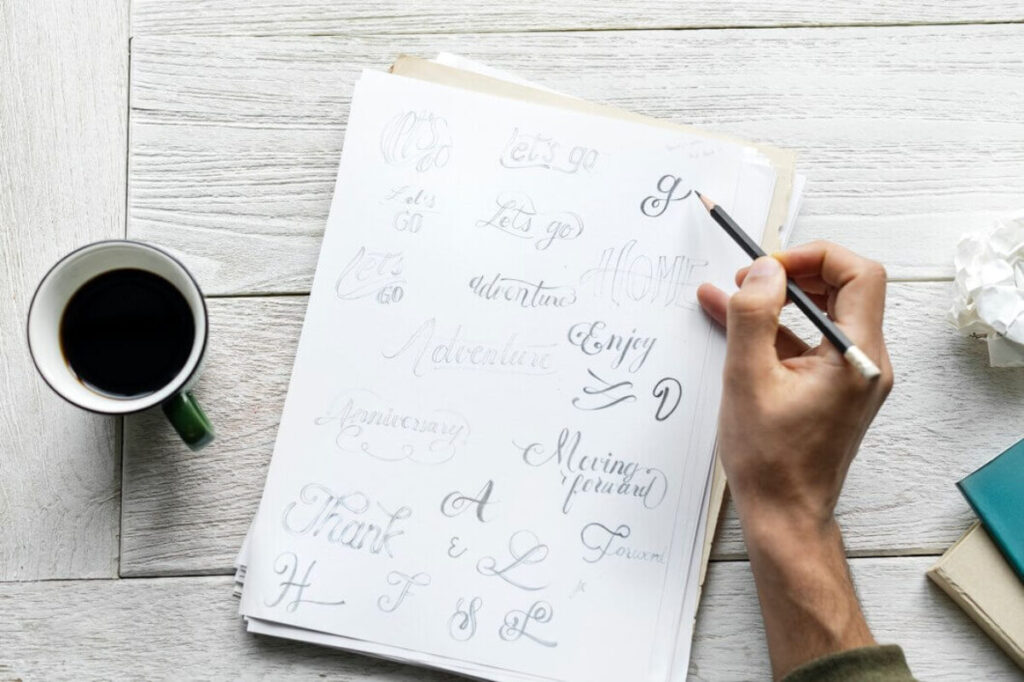 Let's go
Let's go
g
Let's
GO
Let's go
Let's
GO
adventure
HOME
Adventure
Enjoy
D
Anniversary
Moving
forward
Thank
A
Forward
&
L
H
F
S
L